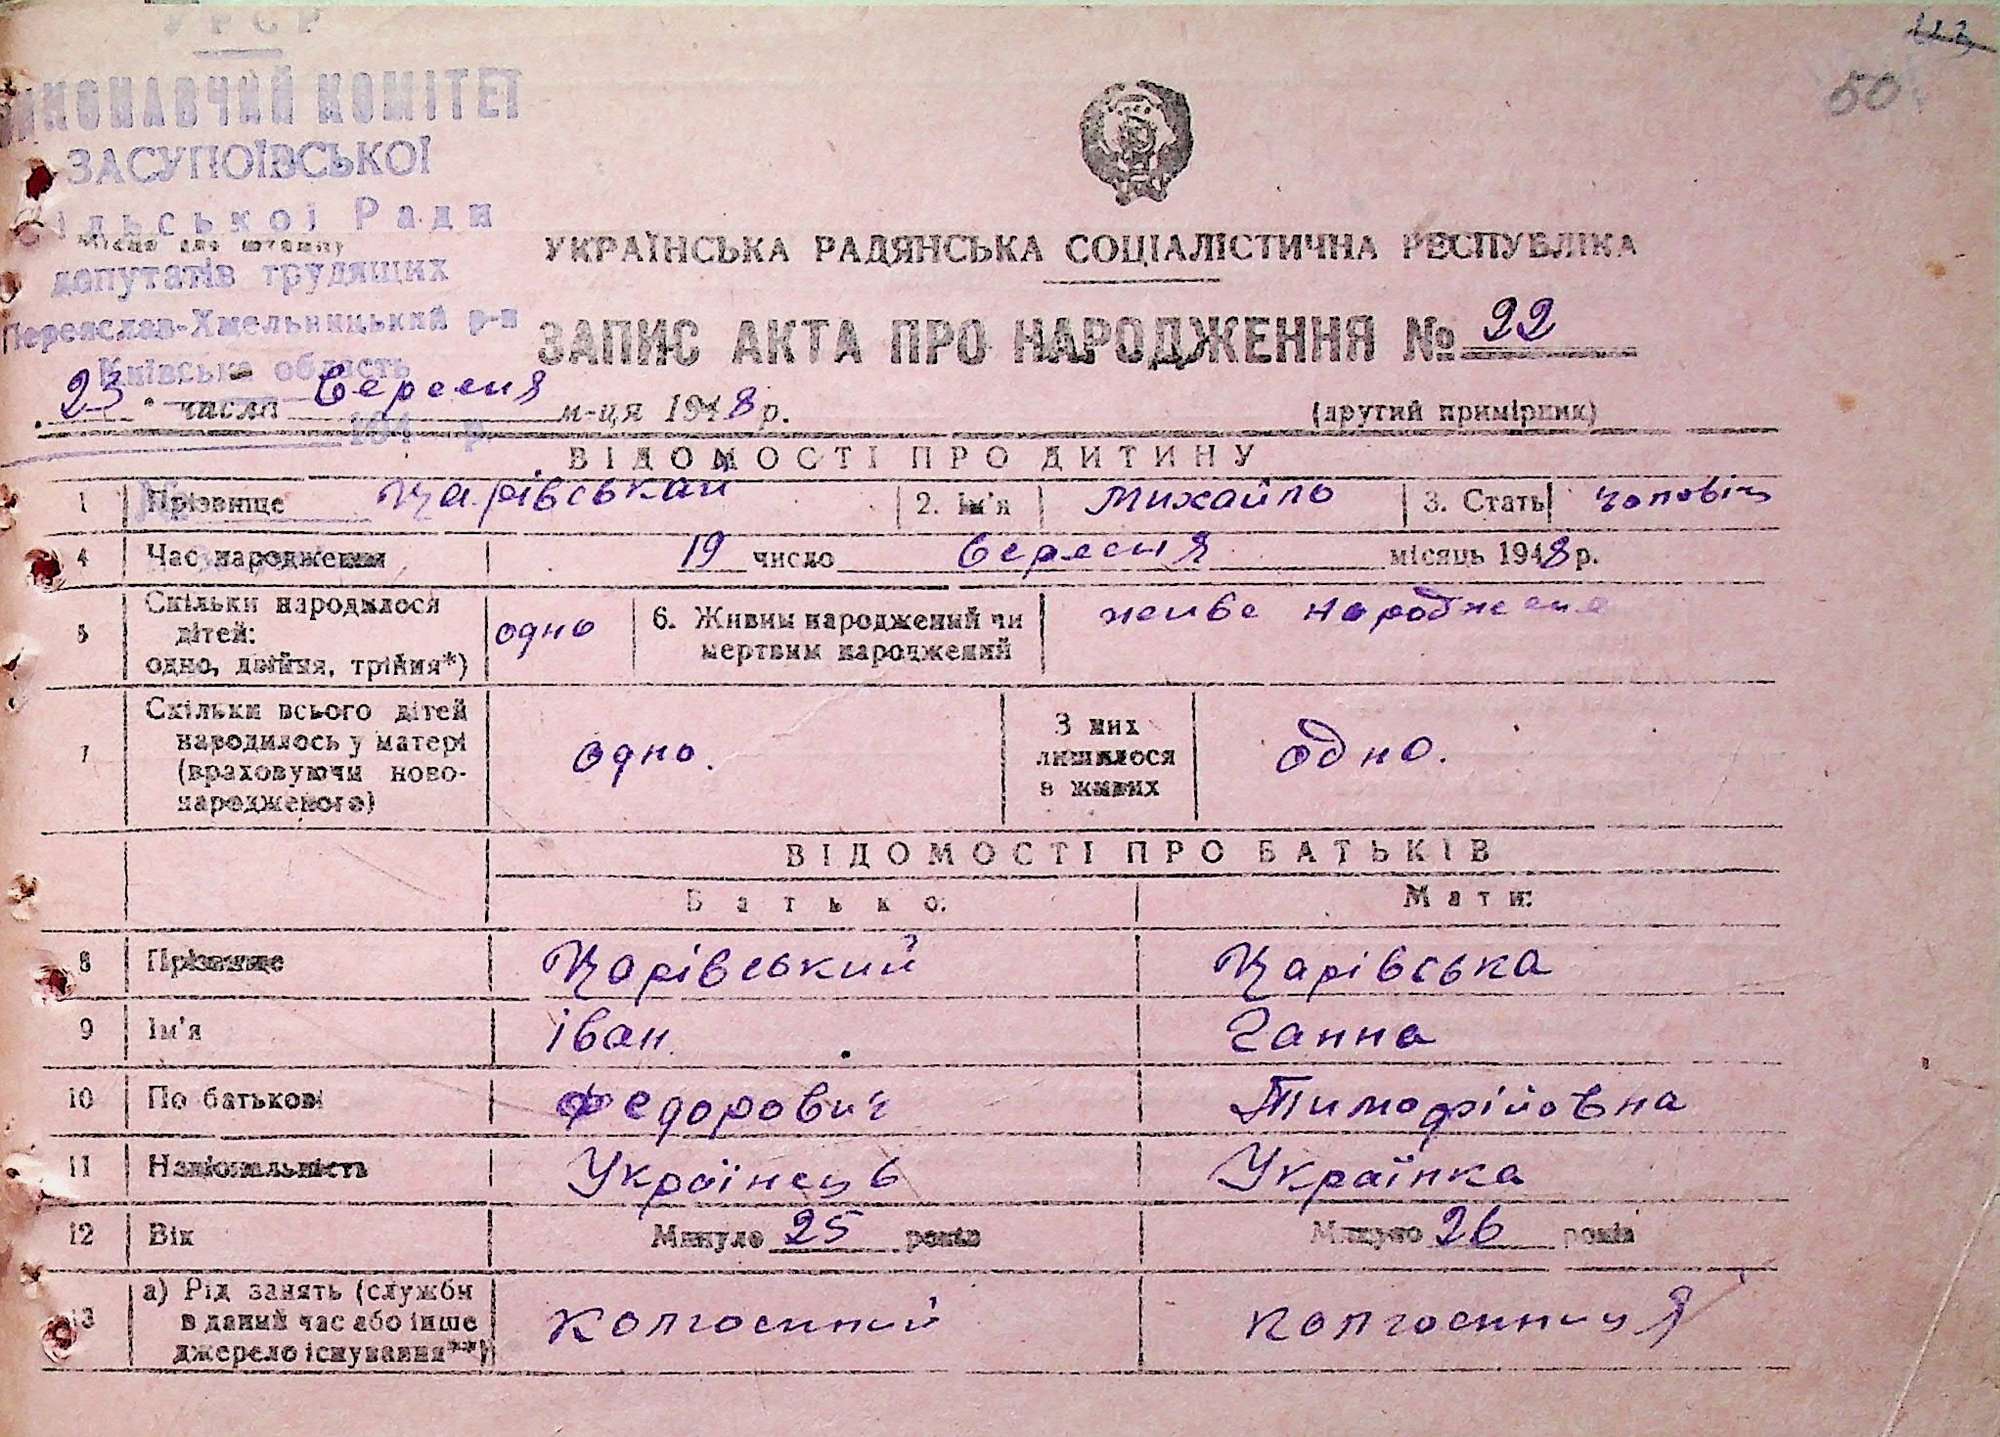 УРСР
ВИКОНАВЧИЙ КОМІТЕТ
ЗАСУПОЇВСЬКОЇ
сільської Ради
Місце для штампу
депутатів трудящих
Переяслав-Хмельницький р-н
Київська область
194 р.
50
УКРАЇНСЬКА РАДЯНСЬКА СОЦІАЛІСТИЧНА РЕСПУБЛІКА
ЗАПИС АКТА ПРО НАРОДЖЕННЯ № 22
23 числа Вересня м-ця 1948 р.
(другий примірник)
ВІДОМОСТІ ПРО ДИТИНУ
1 Прізвище Царівський 2. Ім'я Михайло 3. Стать чоловіч
4 Час народження 19 число Вересня місяць 1948 р.
5 Скільки народилося дітей: одно, двійня, трійня*) одно 6. Живим народжений чи мертвим народжений живе народження
7 Скільки всього дітей народилось у матері (враховуючи новонародженого) одно. З них лишилося в живих одно.
ВІДОМОСТІ ПРО БАТЬКІВ
Батько: Мати:
8 Прізвище Царівський Царівська
9 Ім'я Іван Ганна
10 По батькові Федорович Тимофійовна
11 Національність Українець Українка
12 Вік Минуло 25 років Минуло 26 років
13 а) Рід занять (служби в даний час або інше джерело існування**) колгоспний колгоспниця